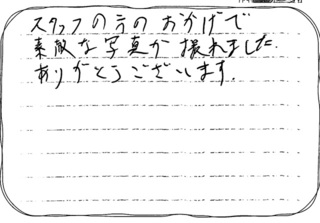 スタッフの方のおかげで
素敵な写真が撮れました.
ありがとうございます.